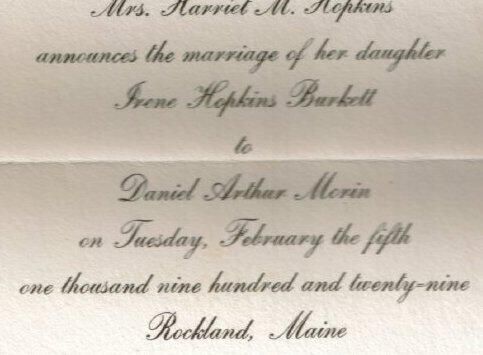 Mrs. Harriet M. Hopkins
announces the marriage of her daughter
Irene Hopkins Burkett
to
Daniel Arthur Morin
on Tuesday, February the fifth
one thousand nine hundred and twenty-nine
Rockland, Maine